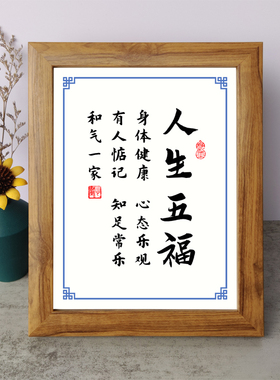 人生五福
身体健康 心态乐观
有人惦记 知足常乐
和气一家